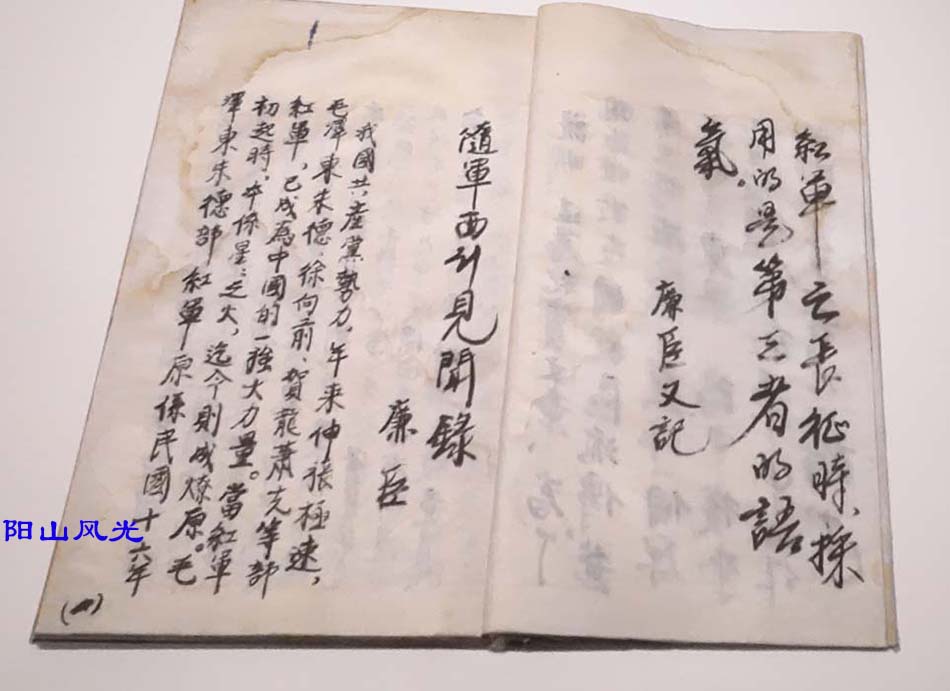 紅軍之長征時、採
用的是第三者的語
氣。
廉臣又記
隨軍西行見聞錄
廉臣
我國共產黨勢力，年來伸張極速，
毛澤東朱德、徐向前、賀龍蕭克等部
紅軍，已成為中國的一強大力量。當紅軍
初起時，本係星:之火，迄今則成燎原。毛
澤東朱德部紅軍原係民國十六年
阳山风光